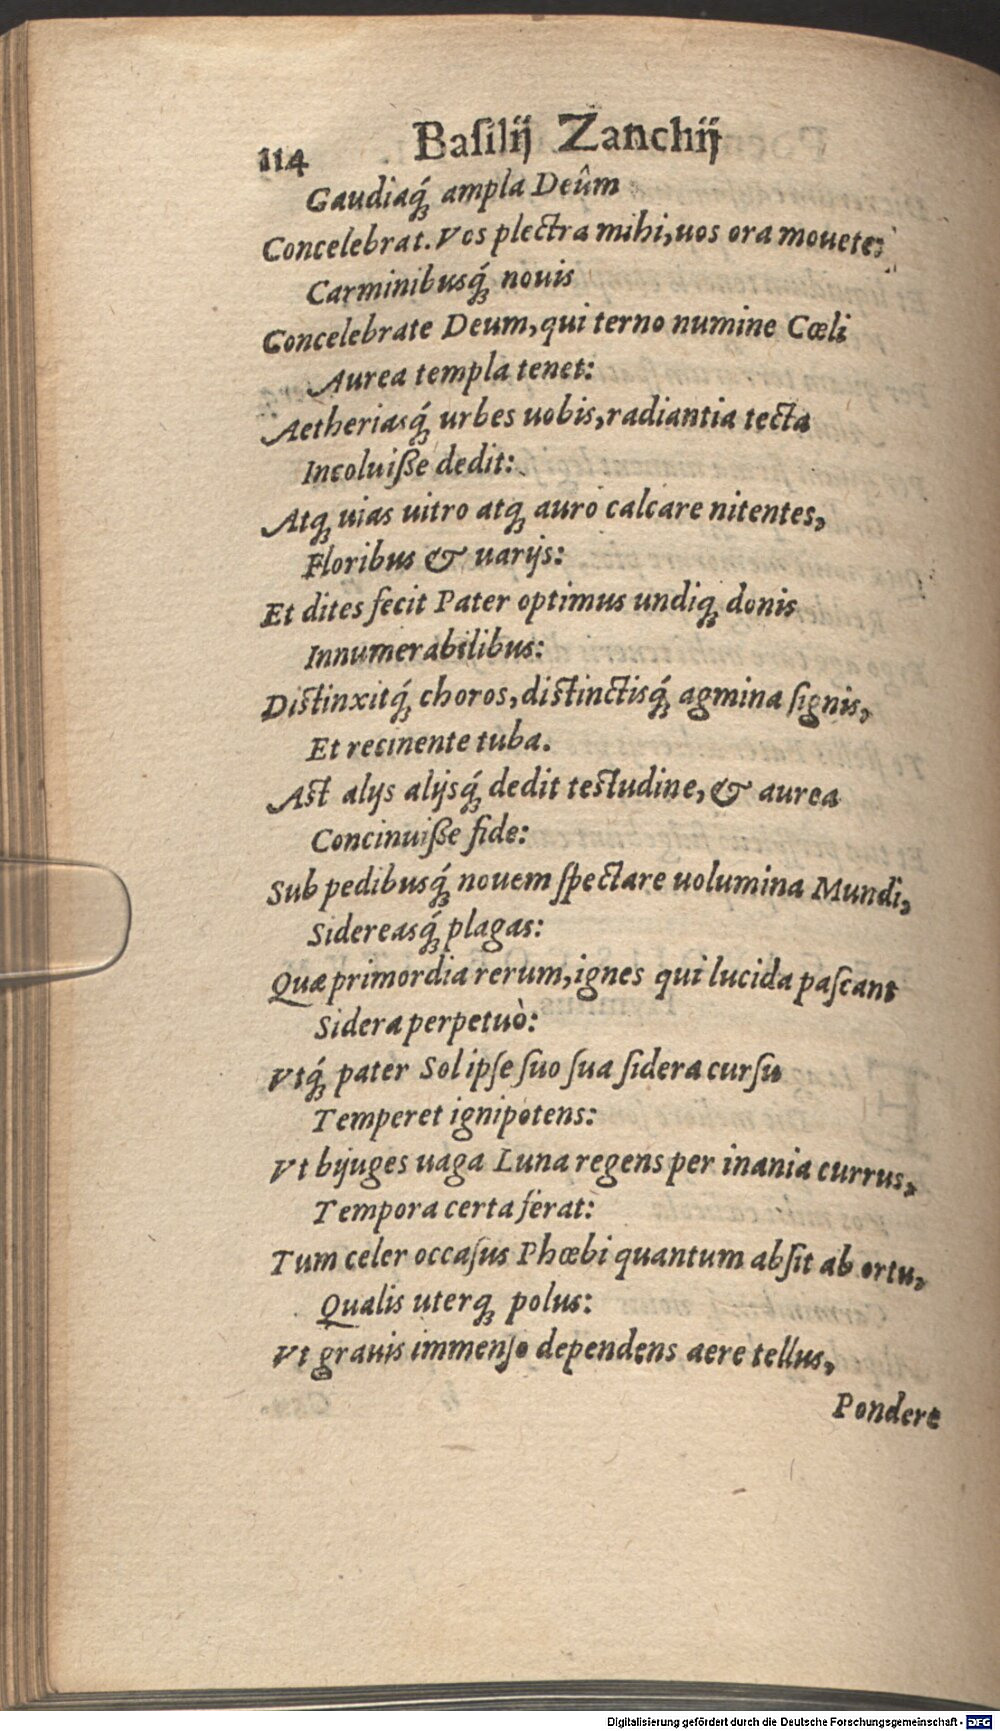 114 Baſilij Zanchij
Gaudiaq́; ampla Deûm
Concelebrat. Vos plectra mihi, uos ora mouete;
Carminibusq́; nouis
Concelebrate Deum, qui terno numine Cœli
Aurea templa tenet:
Aetheriasq́; urbes uobis, radiantia tecta
Incoluiſſe dedit:
Atq; uias uitro atq; auro calcare nitentes,
Floribus & uarijs:
Et dites fecit Pater optimus undiq; donis
Innumerabilibus:
Distinxitq́; choros, distinctisq́; agmina ſignis,
Et recinente tuba.
Ast alijs alijsq́; dedit testudine, & aurea
Concinuiſſe fide:
Sub pedibusq́; nouem ſpectare uolumina Mundi,
Sidereasq́; plagas:
Quæ primordia rerum, ignes qui lucida paſcant
Sidera perpetuò:
Vtq́; pater Sol ipſe ſuo ſua ſidera curſu
Temperet ignipotens:
Vt bijuges uaga Luna regens per inania currus,
Tempora certa ferat:
Tum celer occaſus Phœbi quantum abſit ab ortu,
Qualis uterq; polus:
Vt grauis immenſo dependens aere tellus,
Pondere
Digitalisierung gefördert durch die Deutsche Forschungsgemeinschaft - DFG